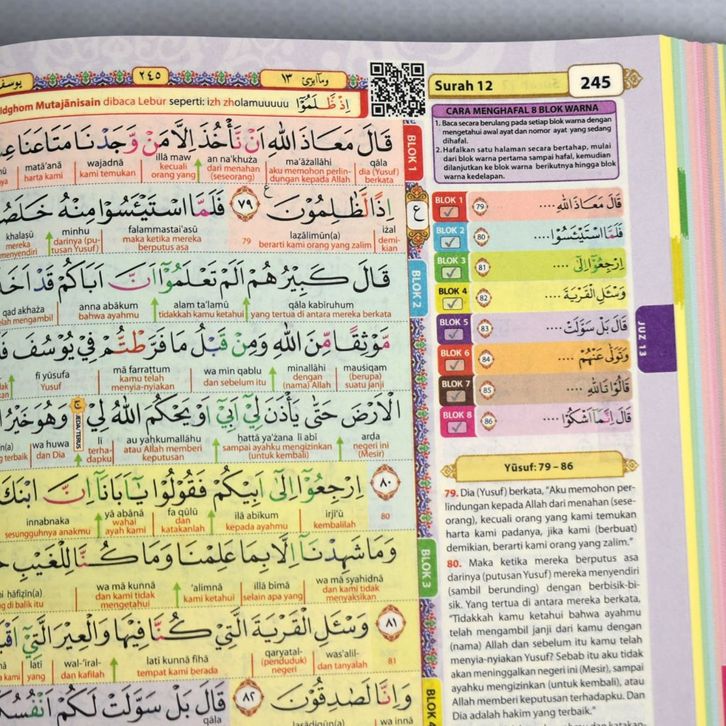 ٢٤٥
وماابرئ ١٣
Idghom Mutajānisain dibaca Lebur seperti: izh zholamuuuu اِذْ ظَّلَمُوْٓا
قَالَ مَعَاذَ اللّٰهِ اَنْ نَّأْخُذَ اِلَّا مَنْ وَّجَدْنَا مَتَاعَنَا
matā'anā wajadnā illā maw an na'khuża ma'āżallāhi qāla
harta kami kami temukan kecuali orang yang dari menahan (seseorang) aku memohon perlindungan kepada Allah dia (Yusuf) berkata
اِذًا لَّظٰلِمُوْنَ ࣖ ٧٩ فَلَمَّا اسْتَيْـَٔسُوْا مِنْهُ خَلَصُ
khalaṣū minhu falammastai'asū 79 laẓālimūn(a) iżal
mereka menyendiri darinya (putusan Yusuf) maka ketika mereka berputus asa berarti kami orang yang zalim demikian
قَالَ كَبِيْرُهُمْ اَلَمْ تَعْلَمُوْٓا اَنَّ اَبَاكُمْ قَدْ اَخَ
qad akhaża anna abākum alam ta'lamū qāla kabīruhum
telah mengambil bahwa ayahmu tidakkah kamu ketahui yang tertua di antara mereka berkata
مَّوْثِقًا مِّنَ اللّٰهِ وَمِنْ قَبْلُ مَا فَرَّطْتُّمْ فِيْ يُوْسُفَ
fī yūsufa mā farraṭtum wa min qablu minallāhi mauṡiqam
Yusuf kamu telah menyia-nyiakan dan sebelum itu dengan (nama) Allah (berupa) suatu janji
الْاَرْضَ حَتّٰى يَأْذَنَ لِيْٓ اَبِيْٓ اَوْ يَحْكُمَ اللّٰهُ لِيْ وَهُوَ خَيْرُ
wa huwa lī au yaḥkumallāhu ḥattā ya'żana lī abī arḍa
dan Dia terhadapku atau Allah memberi keputusan sampai ayahku mengizinkan (untuk kembali) negeri ini (Mesir)
٨٠ اِرْجِعُوْٓا اِلٰٓى اَبِيْكُمْ فَقُوْلُوْا يٰٓاَبَانَآ اِنَّ ابْنَكَ
innabnaka yā abānā fa qūlū ilā abīkum irji'ū 80
sesungguhnya anakmu wahai ayah kami dan katakanlah kepada ayahmu kembalilah
وَمَا شَهِدْنَآ اِلَّا بِمَا عَلِمْنَا وَمَا كُنَّا لِلْغَيْبِ
ḥāfiẓīn(a) wa mā kunnā 'alimnā illā bimā wa mā syahidnā
di balik itu dan kami tidak mengetahui kami ketahui selain apa yang dan kami tidak menyaksikan
٨١ وَسْـَٔلِ الْقَرْيَةَ الَّتِيْ كُنَّا فِيْهَا وَالْعِيْرَ الَّتِيْٓ
latī wal-'īral- latī kunnā fīhā qaryatal- was'alil- 81
yang dan kafilah tempat kami berada (penduduk) negeri dan tanyalah
وَاِنَّا لَصٰدِقُوْنَ ٨٢ قَالَ بَلْ سَوَّلَتْ لَكُمْ اَنْفُسُكُ
qāla laṣādiqūn(a) wa innā
BLOK 1
ع
BLOK 2
BLOK 3
BLOK 4
Surah 12 245
CARA MENGHAFAL 8 BLOK WARNA
1. Baca secara berulang pada setiap blok warna dengan
mengetahui awal ayat dan nomor ayat yang sedang
dihafal.
2. Hafalkan satu halaman secara bertahap, mulai
dari blok warna pertama sampai hafal, kemudian
dilanjutkan ke blok warna berikutnya hingga blok
warna kedelapan.
BLOK 1 79 قَالَ مَعَاذَ اللّٰهِ ....
BLOK 2 80 فَلَمَّا اسْتَيْـَٔسُوْا ....
BLOK 3 81 اِرْجِعُوْٓا اِلٰٓى ....
BLOK 4 82 وَسْـَٔلِ الْقَرْيَةَ ....
BLOK 5 83 قَالَ بَلْ سَوَّلَتْ ....
BLOK 6 84 وَتَوَلّٰى عَنْهُمْ ....
BLOK 7 85 قَالُوْا تَاللّٰهِ ....
BLOK 8 86 قَالَ اِنَّمَآ اَشْكُوْا ....
JUZ 13
Yūsuf: 79 – 86
79. Dia (Yusuf) berkata, "Aku memohon per-
lindungan kepada Allah dari menahan (sese-
orang), kecuali orang yang kami temukan
harta kami padanya, jika kami (berbuat)
demikian, berarti kami orang yang zalim."
80. Maka ketika mereka berputus asa
darinya (putusan Yusuf) mereka menyendiri
(sambil berunding) dengan berbisik-bi-
sik. Yang tertua di antara mereka berkata,
"Tidakkah kamu ketahui bahwa ayahmu
telah mengambil janji dari kamu dengan
(nama) Allah dan sebelum itu kamu telah
menyia-nyiakan Yusuf? Sebab itu aku tidak
akan meninggalkan negeri ini (Mesir), sampai
ayahku mengizinkan (untuk kembali), atau
Allah memberi keputusan terhadapku. Dan
Dia adalah hakim yang terbaik."